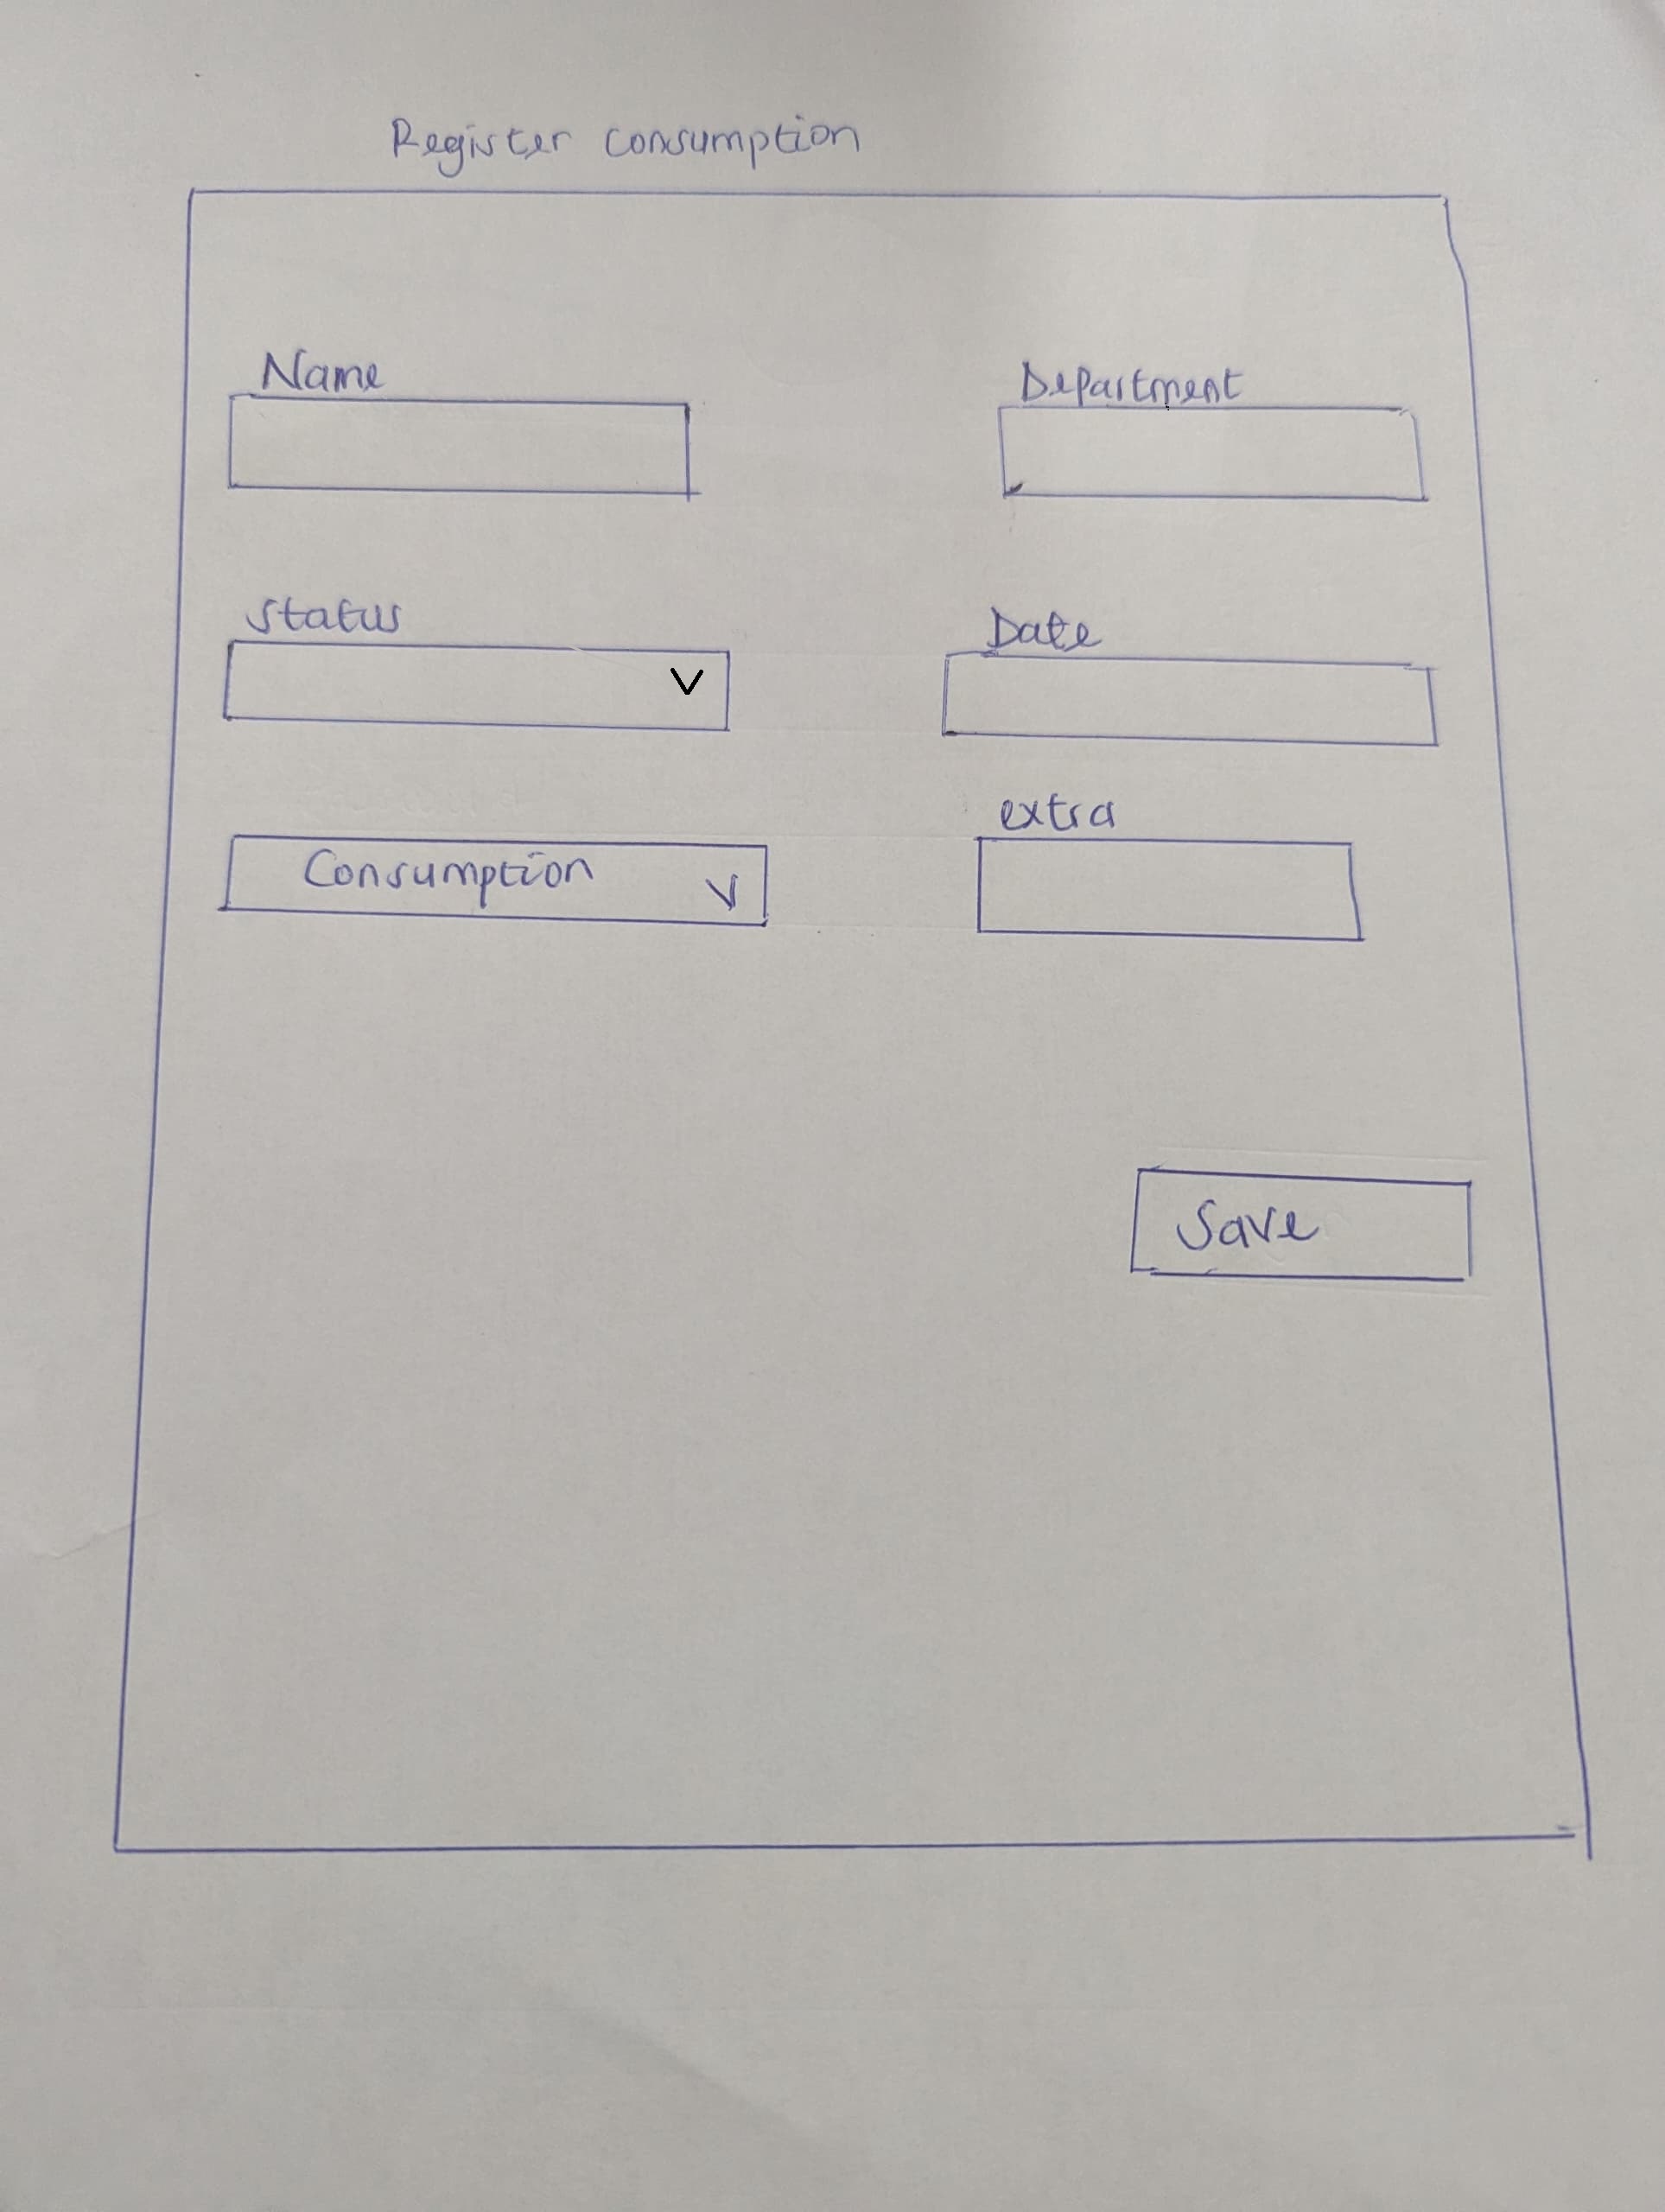 Register consumption
Name
Department
Status
V
Date
extra
Consumption
V
Save